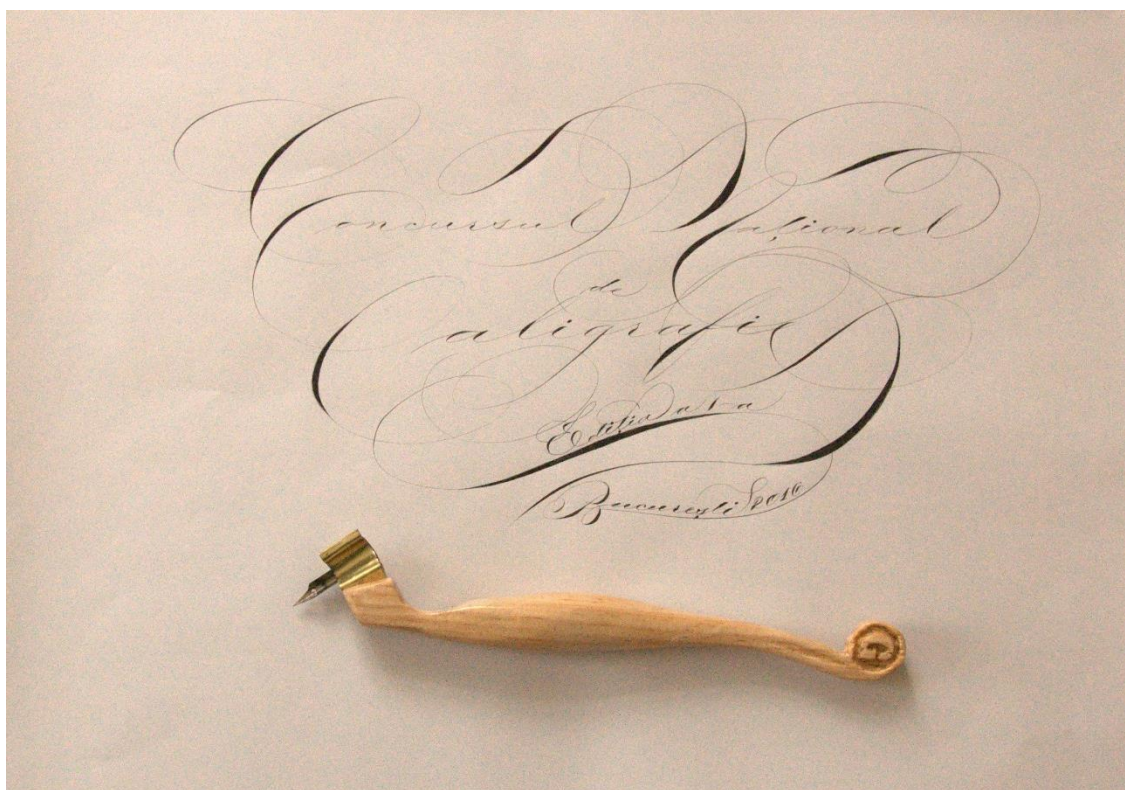 Concursul Național
de
Caligrafie
Ediția a 1-a
București 2016